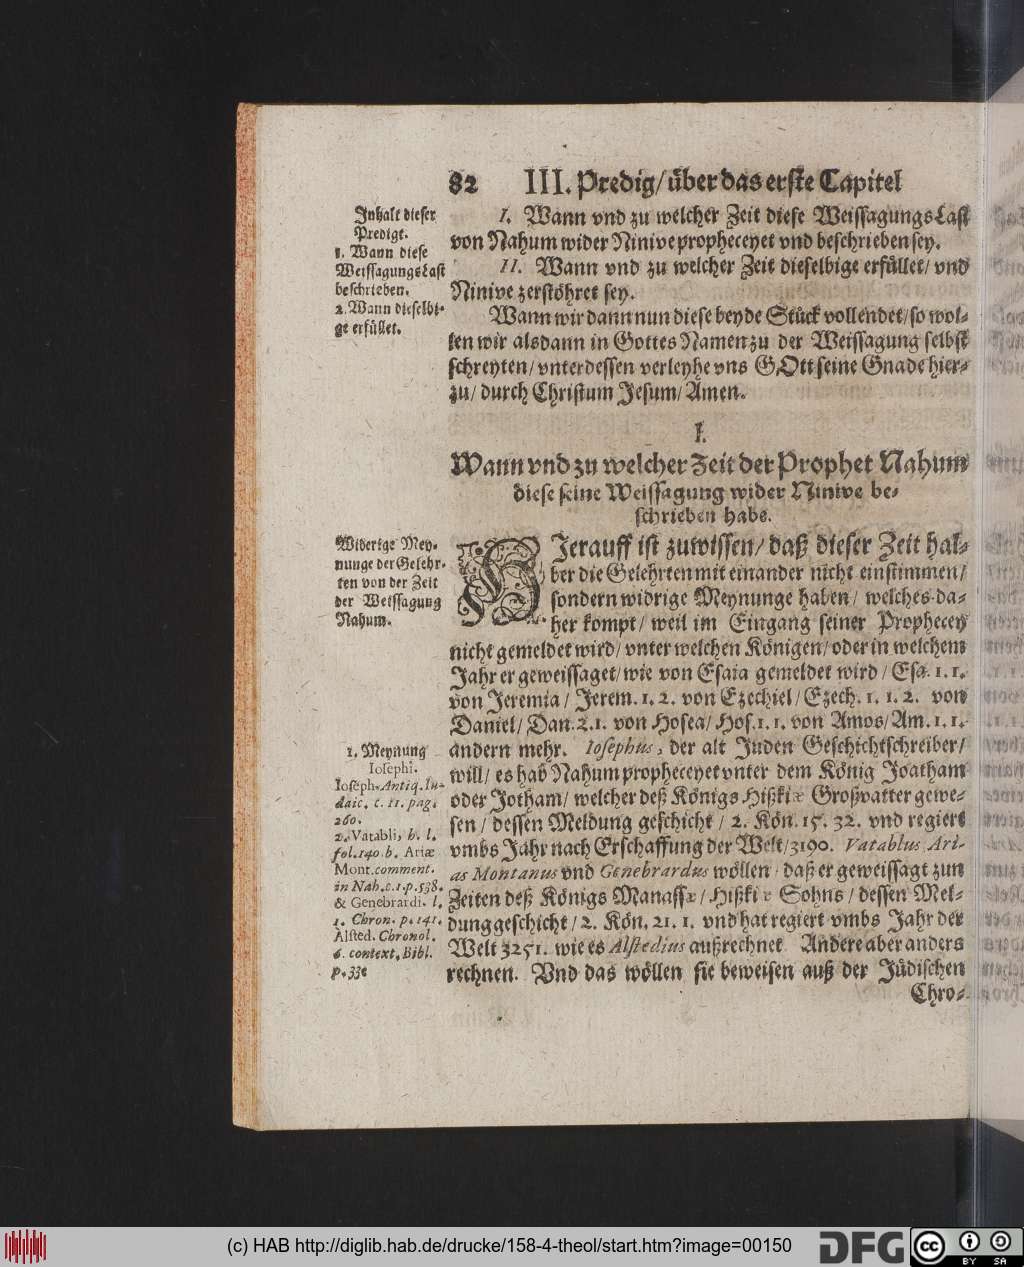 82 III. Predig/ über das erste Capitel
Inhalt dieser
Predigt.
1. Wann diese
WeissagungsLast
beschrieben.
2. Wann dieselbi-
ge erfüllet.
I. Wann vnd zu welcher Zeit diese WeissagungsLast
von Nahum wider Ninive propheceyet vnd beschrieben sey.
II. Wann vnd zu welcher Zeit dieselbige erfüllet/ vnd
Ninive zerstöhret sey.
Wann wir dann nun diese beyde Stück vollendet/ so wol-
len wir alsdann in Gottes Namen zu der Weissagung selbst
schreyten/ vnterdessen verleyhe vns GOtt seine Gnade hier-
zu/ durch Christum Jesum/ Amen.
I.
Wann vnd zu welcher Zeit der Prophet Nahum
diese seine Weissagung wider Ninive be-
schrieben habe.
Widerige Mey-
nunge der Gelehr-
ten von der Zeit
der Weissagung
Nahum.
HIerauff ist zuwissen/ daß dieser Zeit hal-
ber die Gelehrten mit einander nicht einstimmen/
sondern widrige Meynunge haben/ welches da-
her kompt/ weil im Eingang seiner Prophecey
nicht gemeldet wird/ vnter welchen Königen/ oder in welchem
Jahr er geweissaget/ wie von Esaia gemeldet wird/ Esa. 1. 1.
von Jeremia/ Jerem. 1. 2. von Ezechiel/ Ezech. 1. 1. 2. von
Daniel/ Dan. 2. 1. von Hosea/ Hos. 1. 1. von Amos/ Am. 1. 1.
andern mehr. Iosephus, der alt Juden Geschichtschreiber/
will/ es hab Nahum propheceyet vnter dem König Joatham
oder Jotham/ welcher deß Königs Hißkiæ Großvatter gewe-
sen/ dessen Meldung geschicht/ 2. Kön. 15. 32. vnd regiert
vmbs Jahr nach Erschaffung der Welt/ 3190. Vatablus, Ari-
as Montanus vnd Genebrardus wöllen/ daß er geweissagt zun
Zeiten deß Königs Manassæ/ Hißkiæ Sohns/ dessen Mel-
dung geschicht/ 2. Kön. 21. 1. vnd hat regiert vmbs Jahr der
Welt 3251. wie es Alstedius außrechnet. Andere aber anders
rechnen. Vnd das wöllen sie beweisen auß der Jüdischen
Chro-
1. Meynung
Iosephi.
Ioseph. Antiq. Iu-
daic. c. 11. pag.
260.
2. Vatabli, h. l.
fol. 140. b. Ariæ
Mont. comment.
in Nah. c. 1. p. 538.
& Genebrardi. l.
1. Chron. p. 141.
Alsted. Chronol.
6. context. Bibl.
p. 33.
(c) HAB http://diglib.hab.de/drucke/158-4-theol/start.htm?image=00150
DFG
cc
BY SA